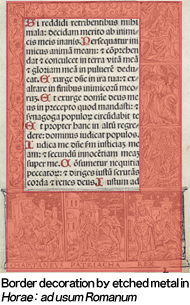 Si reddidi retribentibus mihi
mala: decidam merito ab inimi-
cis meis inanis. Persequatur ini-
micus animā meam: & cōprehen-
dat & conculcet in terra vitā meā
& gloriam meā in puluerē dedu-
cat. Exurge dn̄e in ira tua: & ex-
altare in finibus inimicorū meo-
rū. Et exurge domine deus me-
us in precepto quod mandasti: &
synagoga populorū circūdabit te
Et propter hanc in altū regre-
dere: dominus iudicat populos.
Iudica me dn̄e scd̄m iusticiā me-
am: & secundū innocētiam meā
super me. Cōsumetur nequitia
peccatorū: & diriges iustū scrutās
corda & renes deus. Iustum ad
Border decoration by etched metal in
Horae: ad usum Romanum